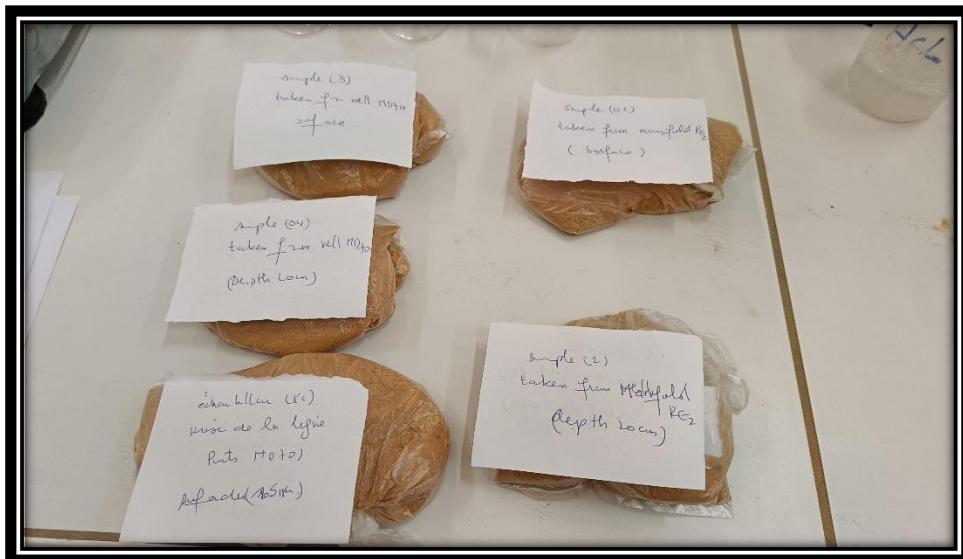 sample (3)
taken from well MD70
surface
sample (01)
taken from manifold RE2
(Surface)
sample (04)
taken from well MD70
(Depth 20cm)
sample (2)
taken from Manifold
RE2
(Depth 20cm)
échantillon
prise de la ligne
Puits MD70)
HCL